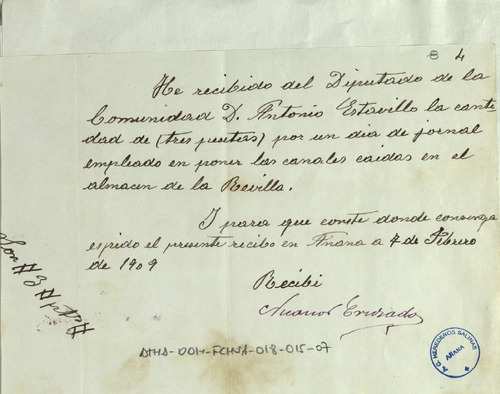 8 4
He recibido del Diputado de la
Comunidad D. Antonio Estavillo la canti-
dad de (tres pesetas) por un dia de jornal
empleado en poner las canales caidas en el
almacen de la Revilla.
I para que conste donde convenga
espido el presente recibo en Añana a 7 de Febrero
de 1909
Recibi
Son # 3 # Pts #
A.G. HEREDEROS SALINAS
AÑANA
ATHA-DOH-FCHSA-018-015-07